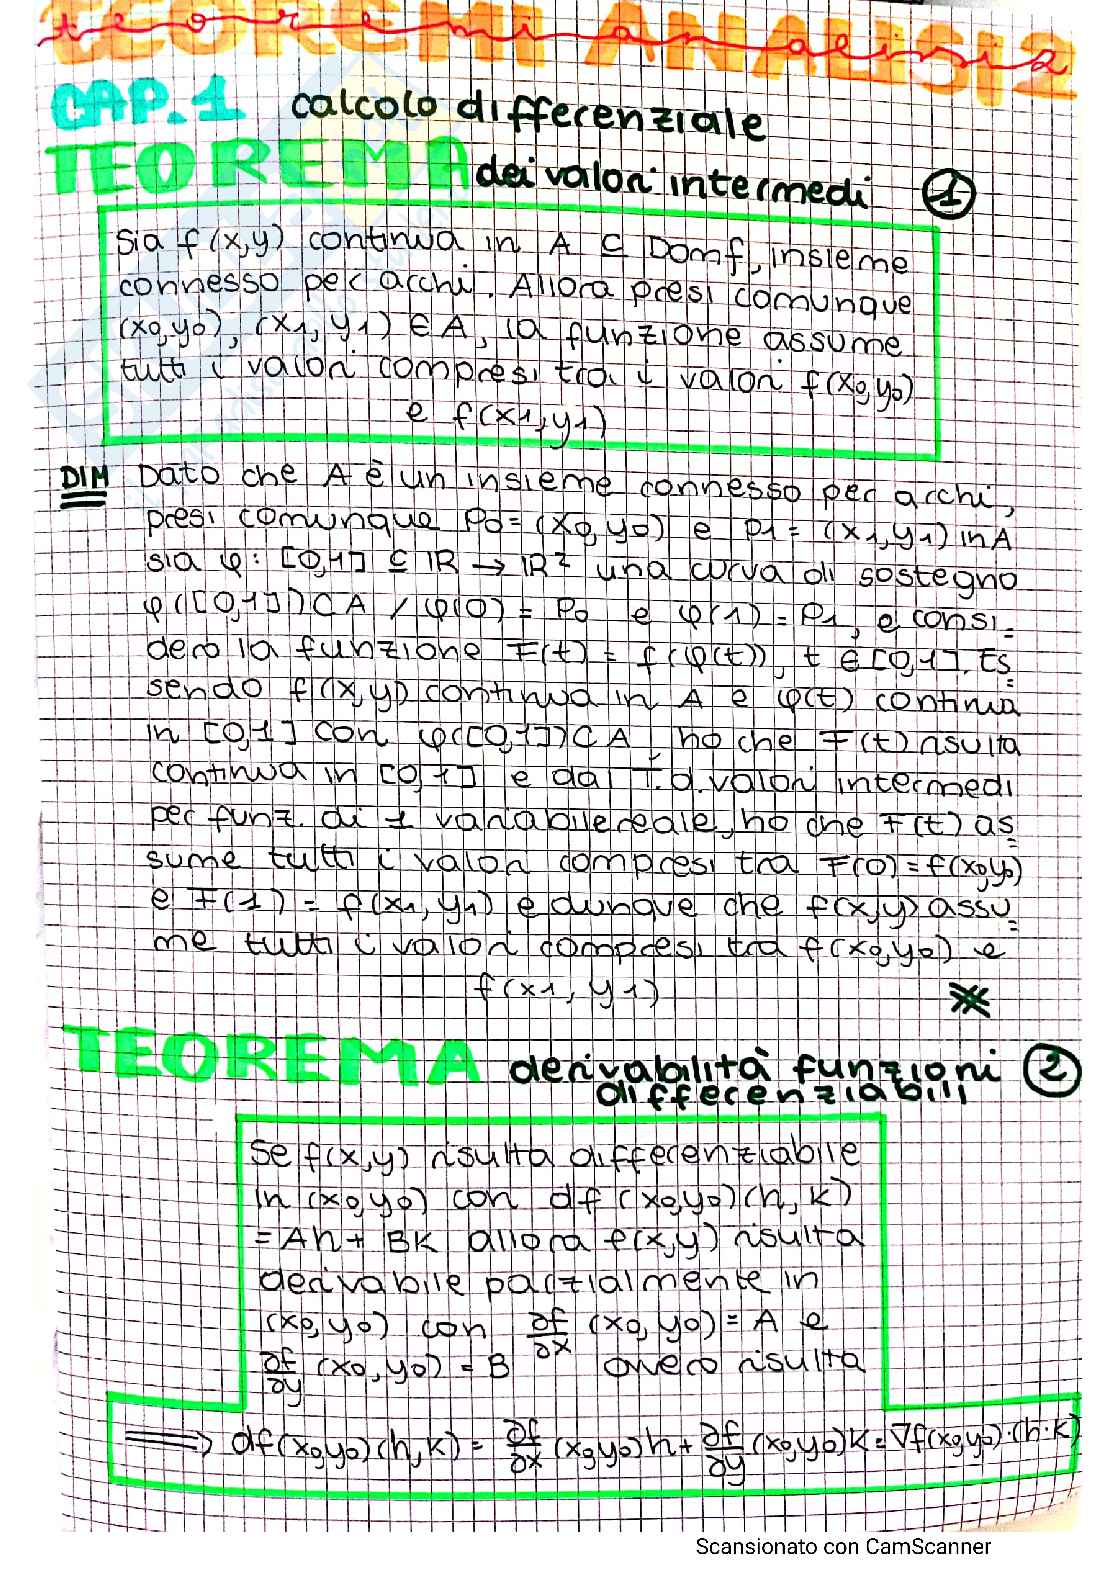 TEOREMI ANALISI 2
teoremi analisi 2
CAP.1 calcolo differenziale
TEOREMA dei valori intermedi 1
Sia f(x,y) continua in A ⊆ Domf, insieme
connesso per archi. Allora presi comunque
(x0,y0), (x1,y1) ∈ A, la funzione assume
tutti i valori compresi tra i valori f(x0,y0)
e f(x1,y1)
DIM Dato che A è un insieme connesso per archi,
presi comunque P0=(x0,y0) e P1=(x1,y1) in A
sia φ: [0,1] ⊆ IR → IR² una curva di sostegno
φ([0,1])⊂A / φ(0)= P0 e φ(1)=P1, e consi-
dero la funzione F(t)= f(φ(t)), t ∈[0,1]. Es=
sendo f(x,y) continua in A e φ(t) continua
in [0,1] con φ([0,1])⊂A, ho che F(t) risulta
continua in [0,1] e dal T.d.valori intermedi
per funz. di 1 variabile reale, ho che F(t) as=
sume tutti i valori compresi tra F(0)=f(x0,y0)
e F(1) = f(x1,y1) e dunque che f(x,y) assu=
me tutti i valori compresi tra f(x0,y0) e
f(x1,y1)
TEOREMA derivabilità funzioni 2
differenziabili
Se f(x,y) risulta differenziabile
in (x0,y0) con df(x0,y0)(h,k)
=Ah+ Bk allora f(x,y) risulta
derivabile parzialmente in
(x0,y0) con ∂f/∂x (x0,y0)= A e
∂f/∂y (x0,y0) = B ovvero risulta
⟹ df(x0,y0)(h,k)= ∂f/∂x (x0,y0)h+ ∂f/∂y (x0,y0)k=∇f(x0,y0)·(h·k)
Scansionato con CamScanner